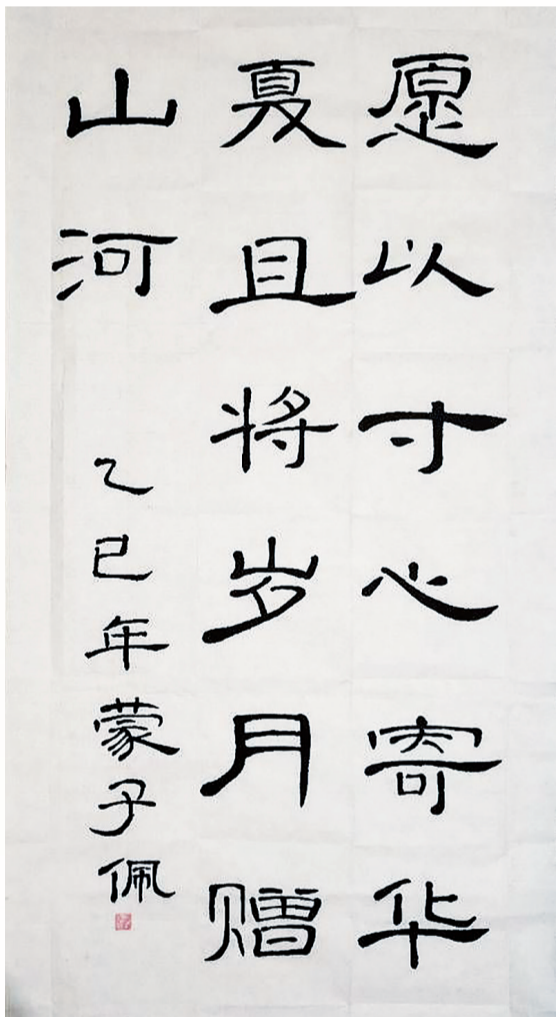 愿以寸心寄华
夏且将岁月赠
山河
乙巳年蒙子佩